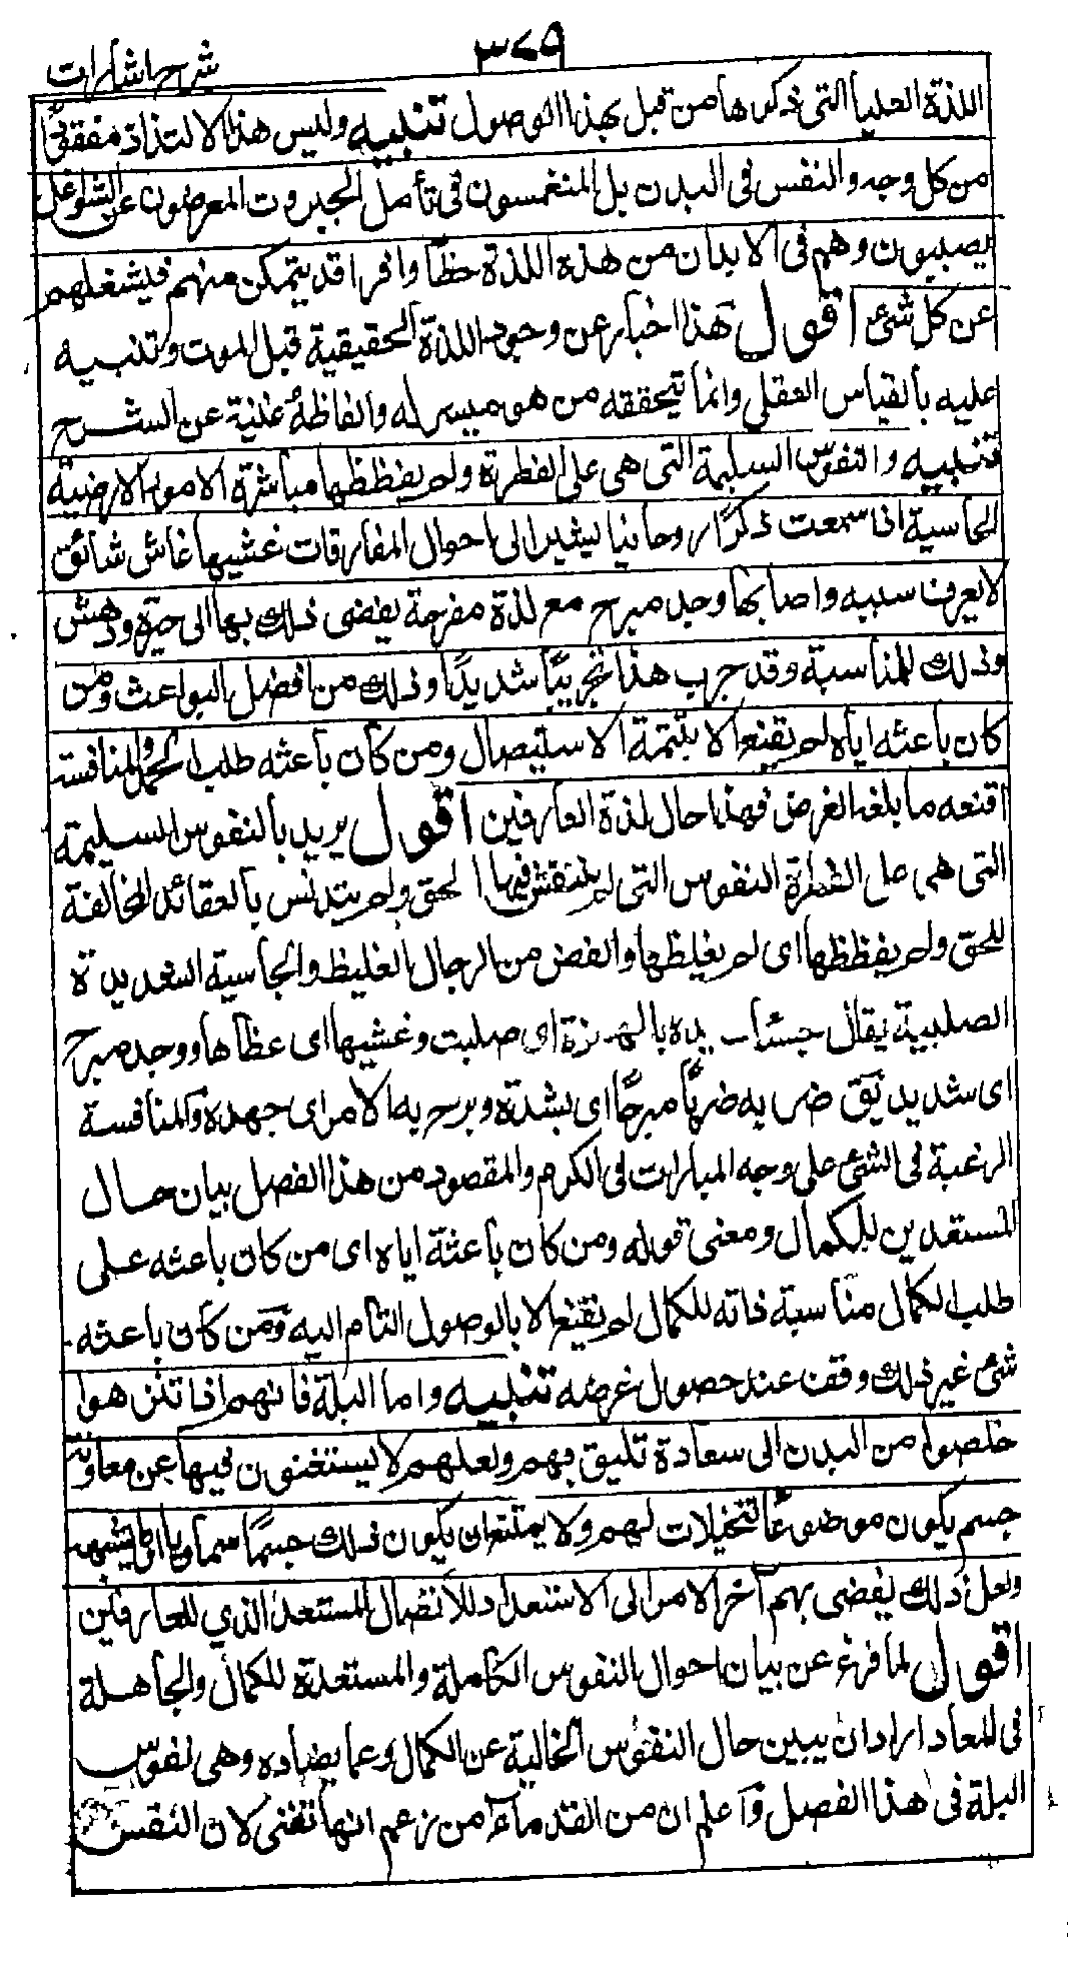 ٣٧٩
شرح اشارات
اللذة العليا التى ذكرها من قبل بهذا الوصول تنبيه وليس هذا الالتذاذ مفقودًا
من كل وجه والنفس فى البدن بل المنغمسون فى تأمل الجبروت المعرضون عن الشواغل
يصيبون وهم فى الابدان من هذه اللذة حظا وافرا قد يتمكن منهم فيشغلهم
عن كل شئ اقول هذا اخبار عن وجود اللذة الحقيقية قبل الموت وتنبيه
عليه بالقياس العقلى وانما يتحققه من هو ميسر له والفاظه غنية عن الشرح
تنبيه والنفوس السليمة التى هى على الفطرة ولم يفظظها مباشرة الامور الارضية
الجاسية اذا سمعت ذكرًا روحانيا يشير الى احوال المفارقات غشيها غاش شائق
لا يعرف سببه واصابها وجد مبرح مع لذة مفرحة يفضى ذلك بها الى حيرة ودهش
وذلك للمناسبة وقد جرب هذا تجريبًا شديدًا وذلك من افضل البواعث ومن
كان باعثه اياه لم يقنع الا بتتمة الاستبصال ومن كان باعثه طلب الحمد والمنافسة
اقنعه ما بلغه الغرض فهذا حال لذة العارفين اقول يريد بالنفوس السليمة
التى هى على الفطرة النفوس التى لم ينتقش فيها الحق ولم يتدنس بالعقائد المخالفة
للحق ولم يفظظها اى لم يغلظها والفض من الرجال الغليظ والجاسية الشديدة
الصلبية يقال جسأت يده بالهمزة اى صلبت وغشيها اى غطاها ووجد مبرح
اى شديد يق ضربه ضربًا مبرحًا اى بشدة وبرح به الامر اى جهده والمنافسة
الرغبة فى الشئ على وجه المبارات فى الكرم والمقصود من هذا الفصل بيان حال
المستعدين للكمال ومعنى قوله ومن كان باعثة اياه اى من كان باعثه على
طلب الكمال مناسبة ذاته للكمال لم يقنع الا بالوصول التام اليه ومن كان باعثه
شئ غير ذلك وقف عند حصول غرضه تنبيه واما البلة فانهم اذا تنزهوا
خلصوا من البدن الى سعادة تليق بهم ولعلهم لا يستغنون فيها عن معاونة
جسم يكون موضوعًا لتخيلات لهم ولا يمتنع ان يكون ذلك جسمًا سماويا او ما يشبهه
ولعل ذلك يفضى بهم آخر الامر الى الاستعداد للاتصال المستعد الذي للعارفين
اقول لما فرغ عن بيان احوال النفوس الكاملة والمستعدة للكمال والجاهلة
فى المعاد اراد ان يبين حال النفوس الخالية عن الكمال وعما يضاده وهى نفوس
البلة فى هذا الفصل واعلم ان من القدماء من زعم انها تفنى لان النفس